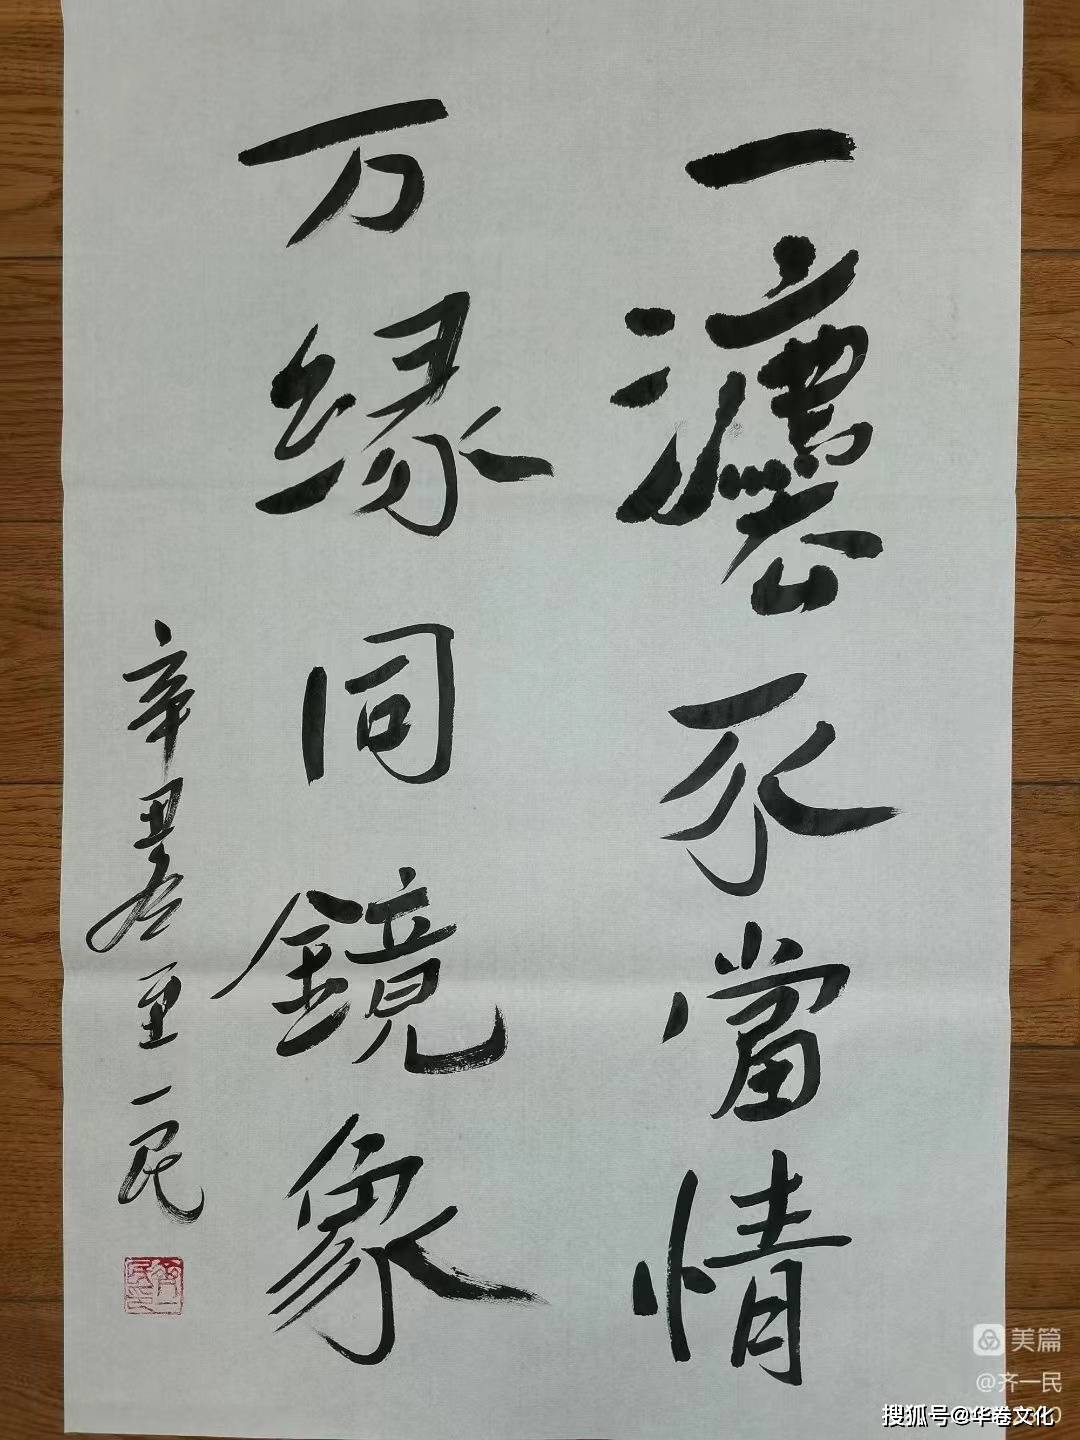 一當情
万缘同鏡象
辛丑冬至一民
美篇
@齐一民
搜狐号@华卷文化